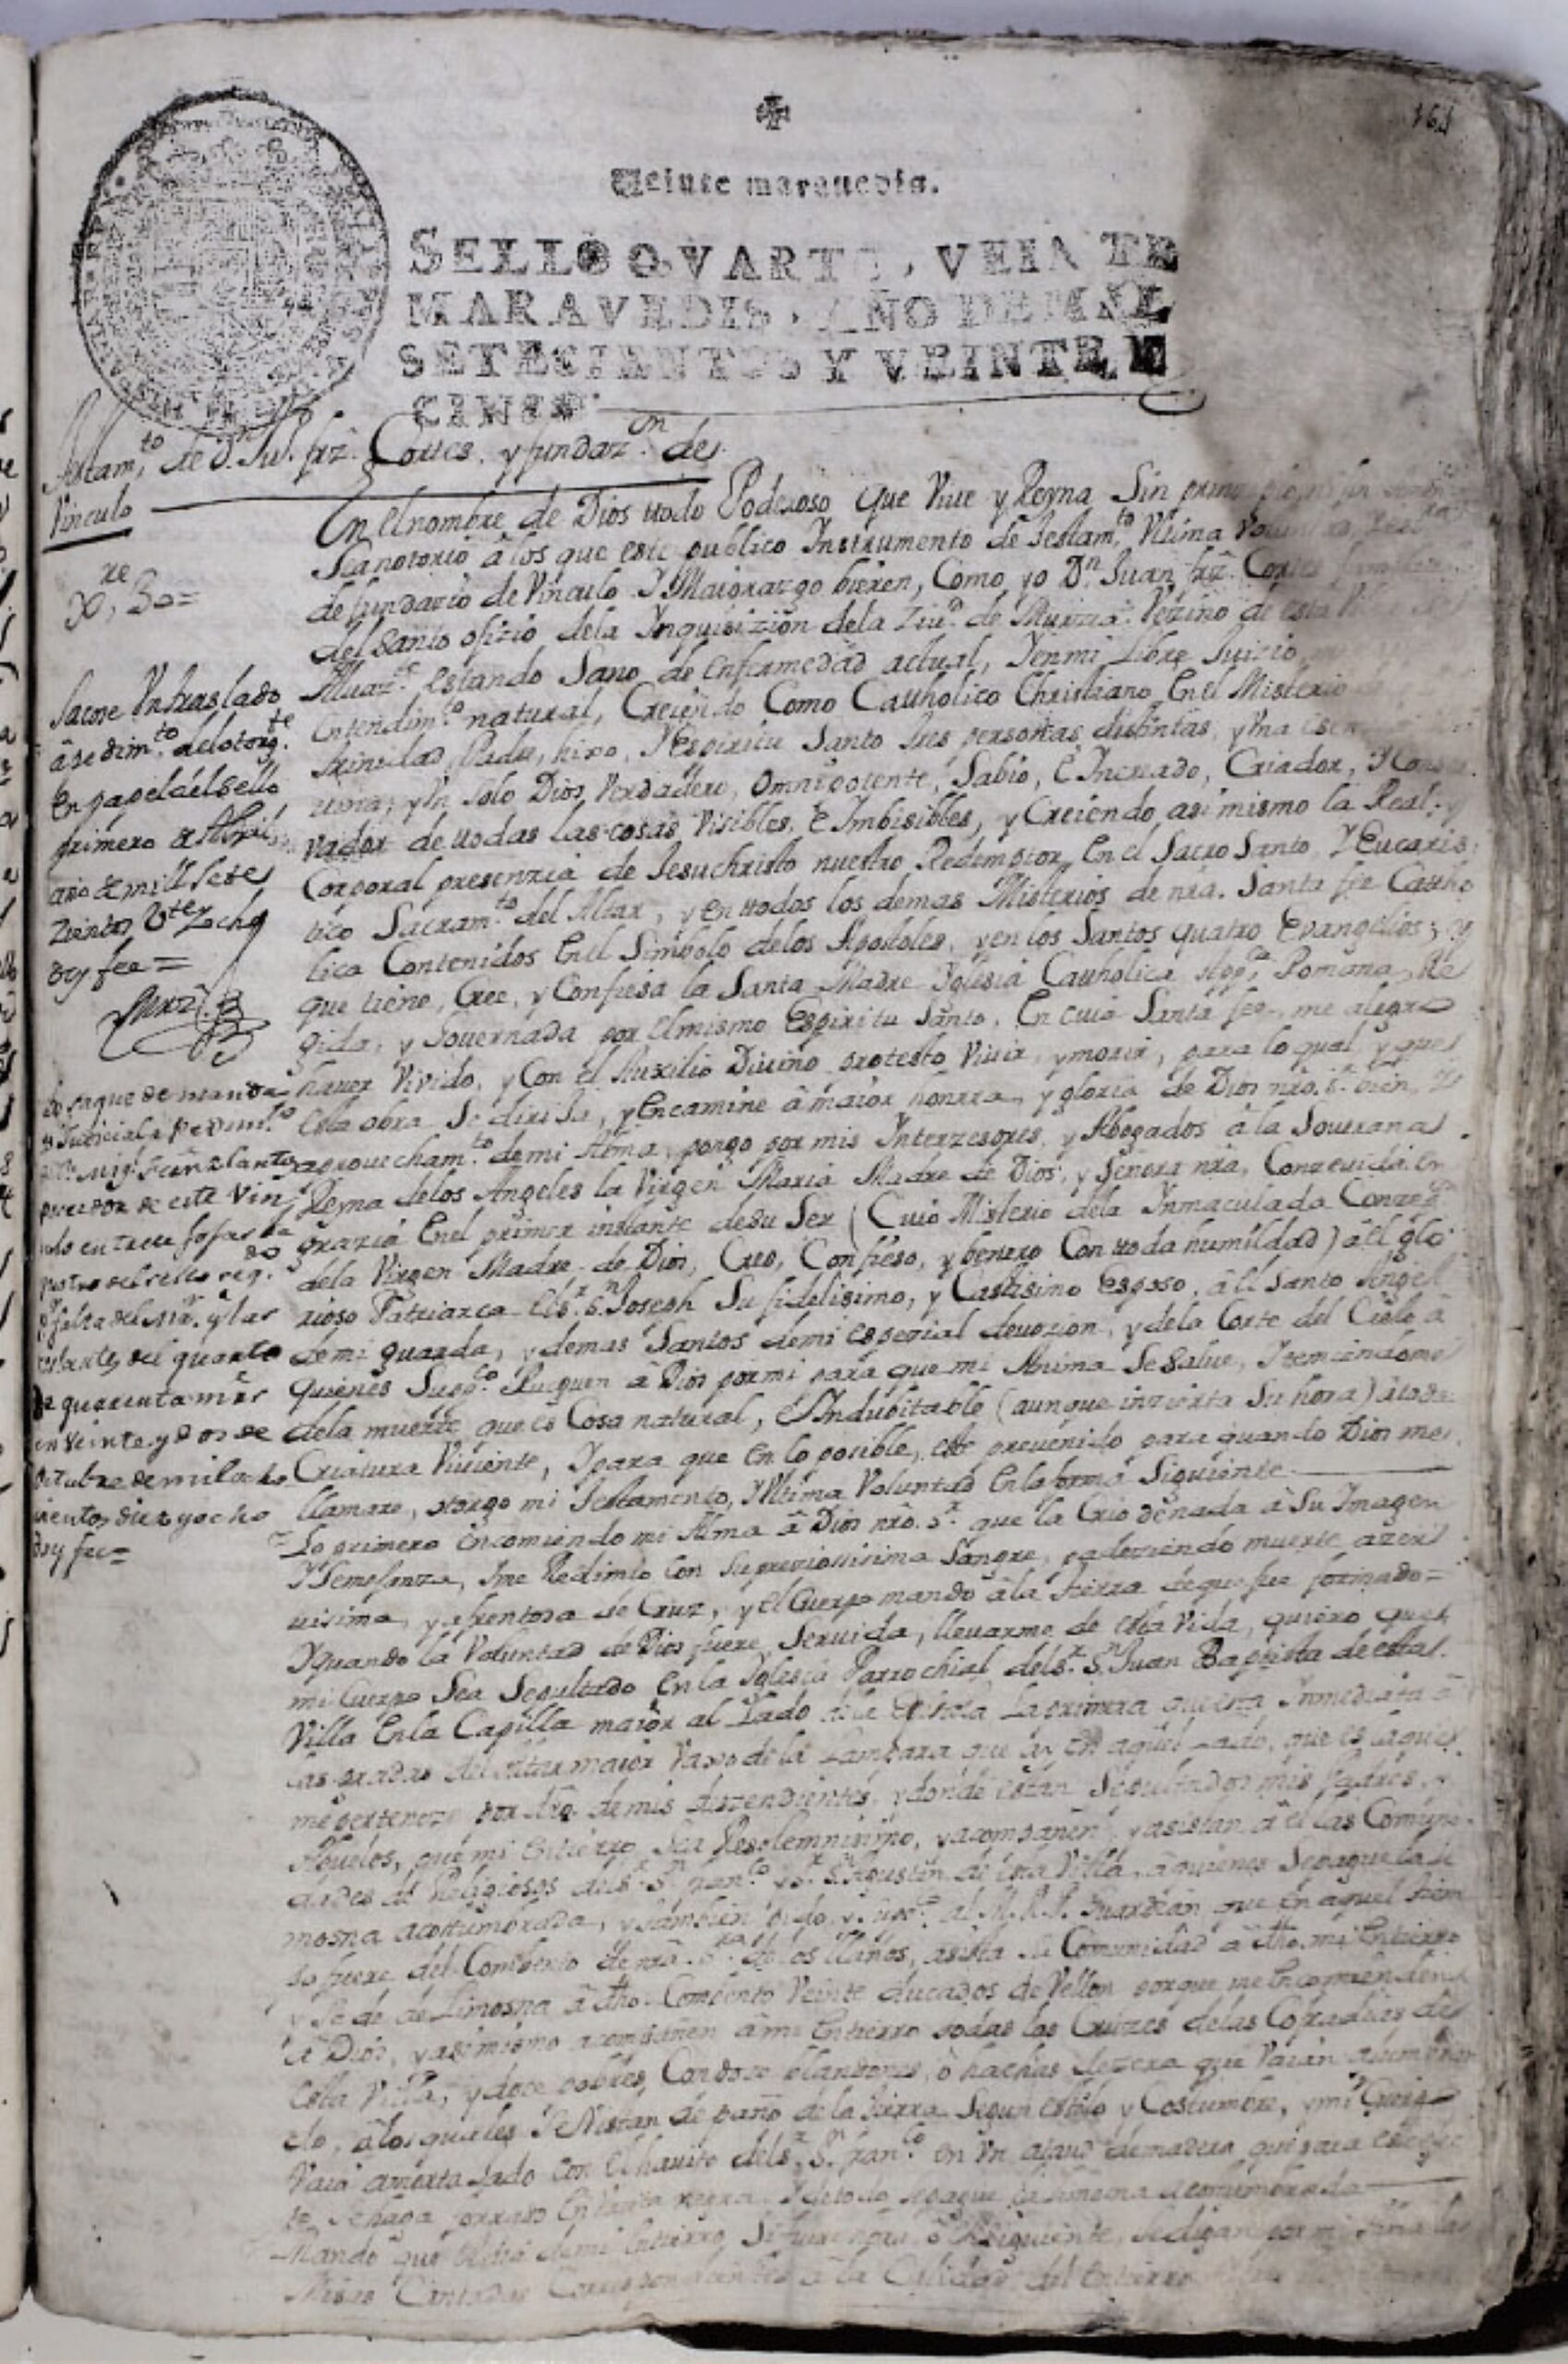 161
Veinte maravedis.
SELLO QVARTO, VEINTE
MARAVEDIS, AÑO DE MIL
SETECIENTOS Y VEINTE Y
CINCO.
Testam.to de D.n Ju.n frz. Cortes, y fundaz.on de
Vinculo
X.re 30=
Saque Un traslado
â pedim.to del otorg.te
en papel del sello
primero
año de mill sete
zientos Vte y ocho
doy fee=
Lo saque de manda
to Judicial a pedim.to
de este Vin
culo en trece fojas
falta del y las
restantes del quarto
de quarenta mrs
en veinte y dos de
octubre de mil ocho
cientos diez y ocho
doy fee=
En el nombre de Dios todo Poderoso que Vive y Reyna Sin
Sea notorio â los que este publico Instrumento de Testam.to Vltima
de fundazio de Vinculo Y Maiorazgo bieren, Como yo D.n Juan frz. Cortes
del Santo ofizio dela Inquisizion dela Ziu.d de Murzia Vezino de esta
estando Sano de enfermedad actual, Y en mi Libre Juizio
entendim.to natural, Creiendo Como Catholico Christiano En el Misterio
trinidad, Padre, hixo, Y Espiritu Santo tres personas distintas, y Vna
y Vn solo Dios Verdadero, Omnipotente, Sabio, e Increado, Criador, Y
vador de todas las cosas Visibles, e Imbisibles, y Creiendo asimismo la Real y
Corporal presenzia de Jesuchristo nuestro Redemptor En el Sacro Santo Y Eucaris
tico Sacram.to del Altar, y en todos los demas Misterios de nra. Santa fee Catho
lica Contenidos En el Simbolo delos Apostoles, y en los Santos quatro Evangelios; y
que tiene, Cree, y Confiesa la Santa Madre Yglesia Catholica App.ca Romana, Re
gida, y Governada por el mismo Espiritu Santo, En cuia Santa fee, me alegro
haver Vivido, y Con el Auxilio Divino protesto Vivir, y morir, para lo qual, y que
esta obra Se dirija, y Encamine â maior honrra y gloria de Dios nro. S.r bien, Y
aprovecham.to de mi Alma, pongo por mis Interzesores, y Abogados â la Soverana
Reyna delos Angeles la Virgen Maria Madre de Dios, y Señora nra, Conzevida En
grazia En el primer instante de su Ser (Cuio Misterio dela Inmaculada Conzep.on
dela Virgen Madre de Dios, Creo, Confieso, y benero Con toda humildad) â el glo
rioso Patriarca el S.r S.n Joseph Su fidelisimo, y Castisimo Esposo, â el Santo Angel
de mi guarda, y demas Santos de mi espezial devozion, y dela Corte del Cielo â
quienes Supp.co Rueguen â Dios por mi para que mi Anima Se Salve, Y temiendome
dela muerte que es Cosa natural, e Indubitable (aunque inzierta Su hora) â toda
Criatura Viviente, Y para que en lo posible, este prevenido para quando Dios me
llamare, otorgo mi Testamento, Y Vltima Voluntad En la forma Siguiente
Lo primero encomiendo mi Alma â Dios nro. S.r que la Crio de nada â Su Imagen
Y Semejanza, Y me Redimio con Su preziosisima Sangre, padeziendo muerte azer
visima, y afrentosa de Cruz, y el Cuerpo mando â la tierra de que fue formado=
Y quando la Voluntad de Dios fuere Servida, llevarme de esta Vida, quiero que
mi Cuerpo Sea Sepultado En la Yglesia Parrochial del S.r S.n Juan Baptista de esta
Villa En la Capilla maior al Lado dela Epistola la primera Inmediata â
las gradas del Altar maior Vaxo dela Lampara que ay en aquel Lado, que es la que
me perteneze por dro. de mis aszendientes, y donde estan Sepultados mis Padres, y
Abuelos, que mi Entierro Sea Resolemnisimo, y acompañen y asistan â el las Comuni
dades de Religiosos del S.r S.n fran.co y S.r S.n Agustin de esta Villa, â quienes Se pague la li
mosna acostumbrada, y tambien pido, y Supp.co al M.R.P. Guardian que En aquel tiem
po fuere del Combento de nra. S.ra delos llanos, asista Su Comunidad â dho. mi Entierro
y Se de de Limosna â dho. Combento Veinte ducados de Vellon porque me Encomienden
â Dios, y asimismo acompañen â mi Entierro todas las Cruzes delas Cofradias de
esta Villa, y doce pobres Con doce blandones, ô hachas de zera que Vaian alumbran
do, â los quales Se Vistan de paño dela tierra Segun estilo y Costumbre, y mi Cuerpo
Vaia amortajado con el havito del S.r S.n fran.co en Vn ataud de madera que para este
Se haga forrado En negra, Y de todo Se pague la limosna acostumbrada
Mando que el dia de mi Entierro Si fuere hora, ô el Siguiente, Se digan por mi
Misas Cantadas Correspondientes â la Calidad del Entierro